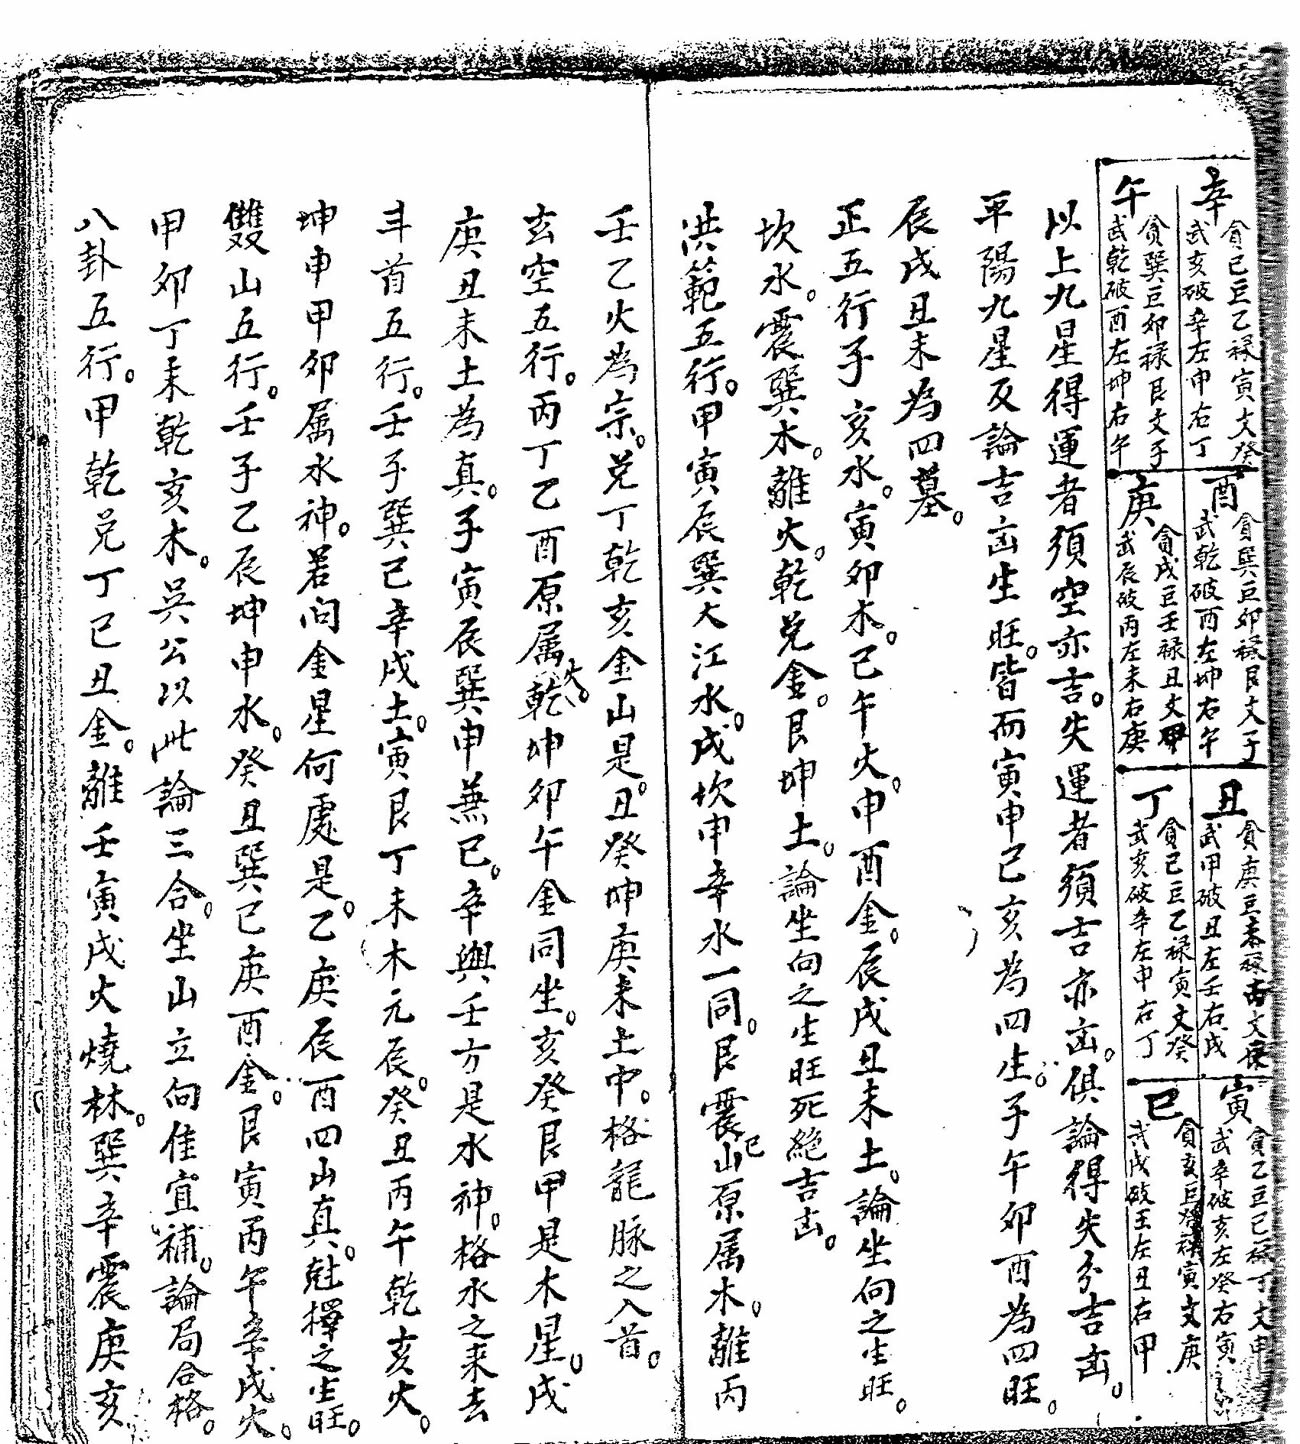 辛
貪巳巨乙祿寅文癸
武亥破辛左申右丁
酉
貪巽巨卯祿艮文子
武乾破酉左坤右午
丑
武甲破丑左壬右戌
寅
貪乙巨巳祿丁文申
武辛破亥左癸右寅
午
貪巽巨卯祿艮文子
武乾破酉左坤右午
庚
貪戌巨壬祿丑文甲
武辰破丙左未右庚
丁
貪巳巨乙祿寅文癸
武亥破辛左申右丁
巳
貪亥巨癸祿寅文庚
武戌破壬左丑右甲
以上九星得運者須空亦吉。失運者須吉亦凶。俱論得失分吉凶。
平陽九星及論吉凶生旺。皆而寅申巳亥為四生。子午卯酉為四旺。
辰戌丑未為四墓。
正五行子亥水。寅卯木。巳午火。申酉金。辰戌丑未土。論坐向之生旺。
坎水。震巽木。離火。乾兌金。艮坤土。論坐向之生旺死絕吉凶。
洪範五行。甲寅辰巽大江水。戌坎申辛水一同。艮震巳山原属木。離丙
壬乙火為宗。兌丁乾亥金山是。丑癸坤庚未土中。格龍脉之入首。
玄空五行。丙丁乙酉原属火。乾坤卯午金同坐。亥癸艮甲是木星。戌
庚丑未土為真。子寅辰巽申兼巳。辛與壬方是水神。格水之来去
斗首五行。壬子巽巳辛戌土。寅艮丁未木元辰。癸丑丙午乾亥火。
坤申甲卯属水神。若问金星何處是。乙庚辰酉四山真。尅擇之生旺。
雙山五行。壬子乙辰坤申水。癸丑巽巳庚酉金。艮寅丙午辛戌火。
甲卯丁未乾亥木。吳公以此論三合。坐山立向佳宜補。論局合格。
八卦五行。甲乾兌丁巳丑金。離壬寅戌火燒林。巽辛震庚亥